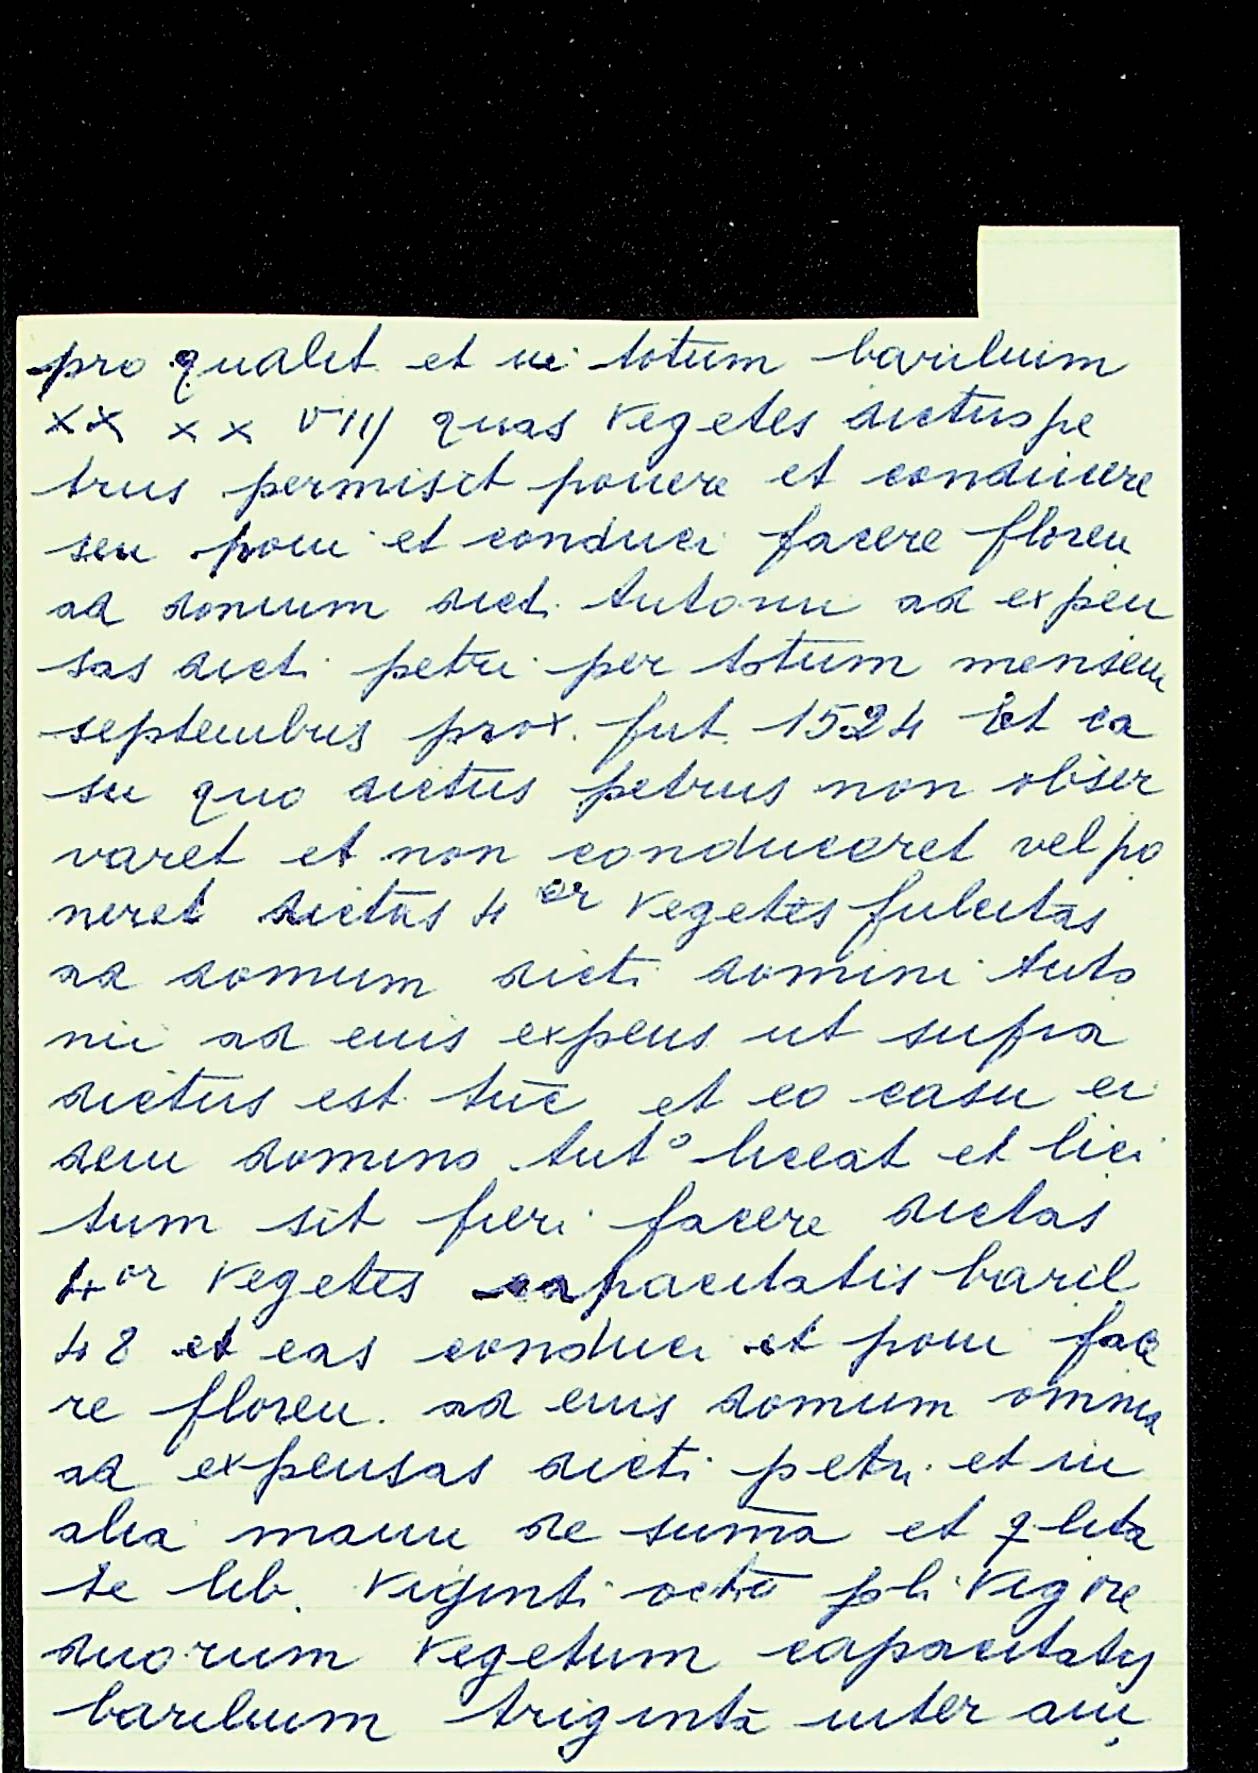 pro qualit et in totum barilium
XX XX VIIJ quas vegetes dictus pe
trus permisit ponere et conducere
seu poni et conduci facere floren
ad domum dict. Antonii ad expen
sas dicti petri per totum mensem
septembris prox. fut. 1524 Et ca
su quo dictus petrus non obser
varet et non conduceret vel po
neret dictas 4or vegetes fulcitas
ad domum dicti domini Anto
nii ad eius expens ut supra
dictus est tūc et eo casu ei
dem domino Antº liceat et lici
tum sit fieri facere dictas
4or vegetes capacitatis baril
48 et eas conduci et poni face
re floren. ad eius domum omnia
ad expensas dicti petri et in
alia manu de summa et qlita
te lib. viginti octo pli vigore
duorum vegetum capacitatis
barilium triginta inter am